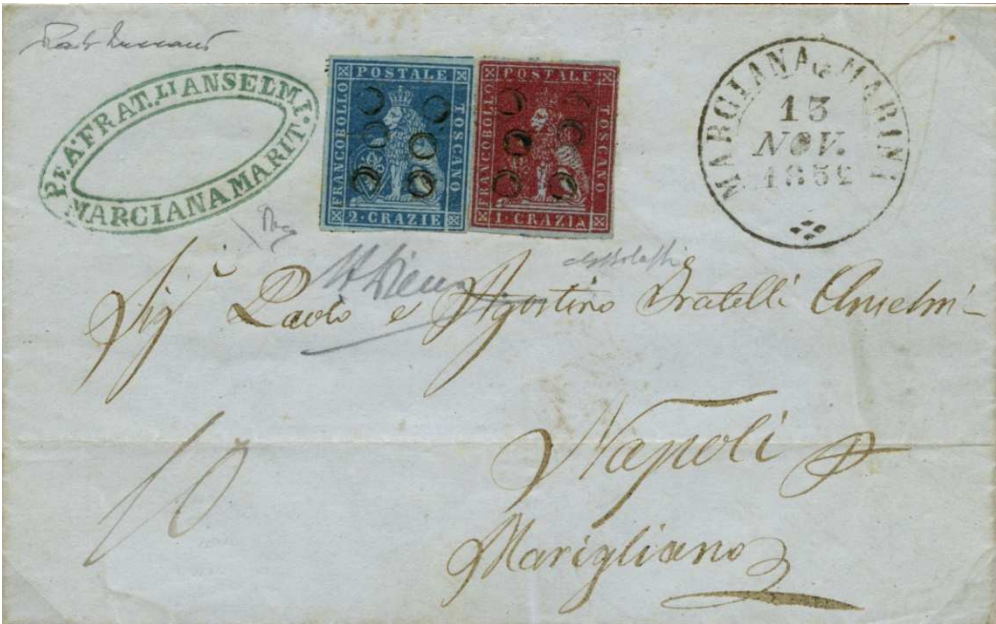 Pe.A FRAT.LI ANSELMI.
MARCIANA MARIT.
FRANCOBOLLO
POSTALE
TOSCANO
2·CRAZIE
FRANCOBOLLO
POSTALE
TOSCANO
1·CRAZIA
MARCIANA MARINA
13
NOV.
1852
Sigri Paolo e Agostino Fratelli Anselmi
Napoli
Marigliano
10